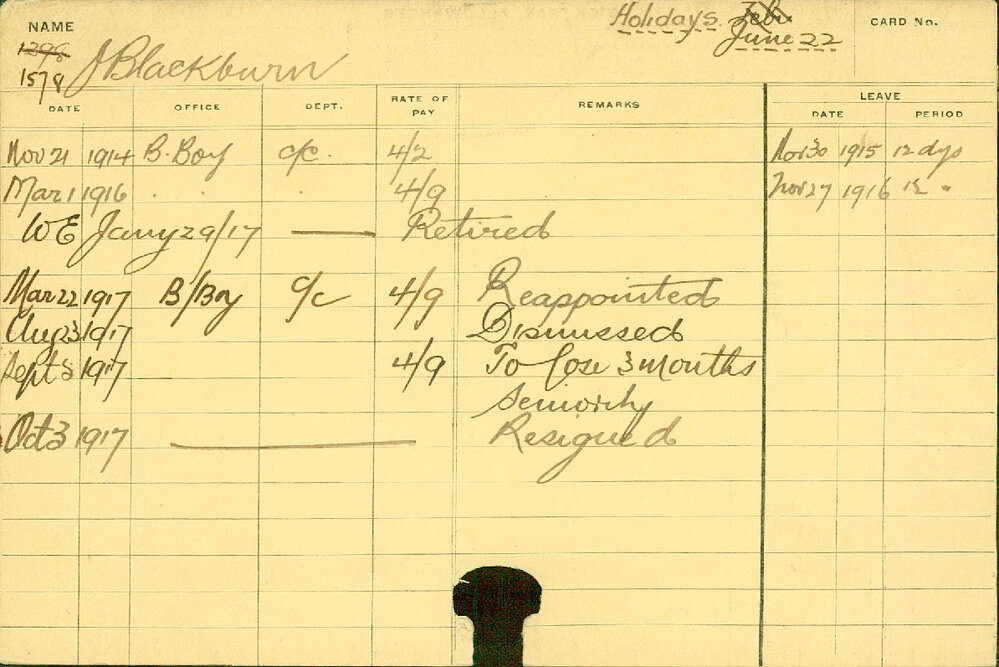 NAME
Holidays. Feby
CARD No.
1398
June 22
1578 J Blackburn
DATE OFFICE DEPT. RATE OF PAY REMARKS LEAVE
DATE PERIOD
Nov 21 1914 B. Boy c/c. 4/2 Nov 30 1915 12 dys
Mar 1 1916 . . . 4/9 Nov 27 1916 12 "
WE Jany 29/17 — Retired
Mar 22 1917 B/Boy c/c 4/9 Reappointed
Aug 23 1917 Dismissed
Sept 3 1917 4/9 To lose 3 months
Seniority
Oct 3 1917 — Resigned